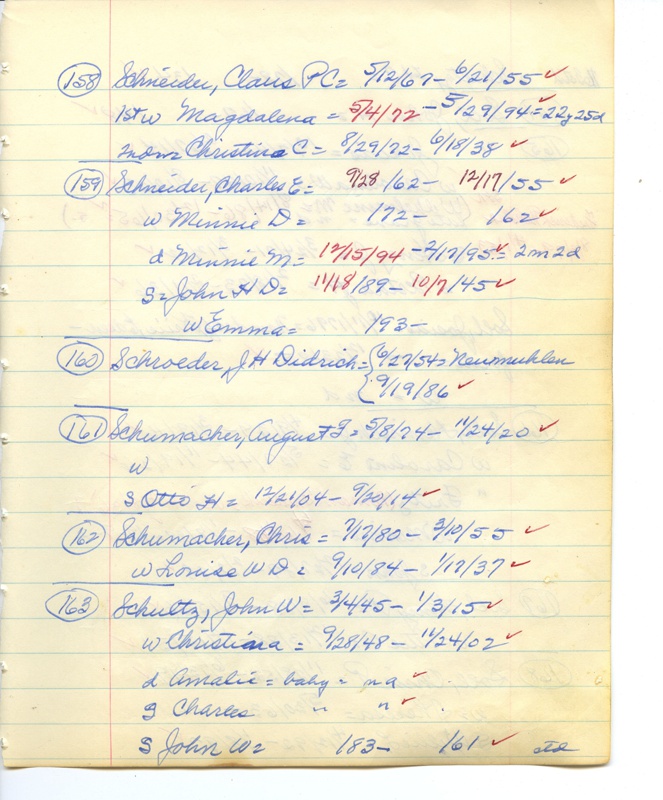 158 Schneider, Claus P C = 5/12/67 - 6/21/55 ✓
1st w Magdalena = 5/4/72 - 5/29/94 ✓ = 22y25d
2nd w Christina C = 8/29/72 - 6/18/38 ✓
159 Schneider, Charles E = 9/28/62 - 12/17/55 ✓
w Minnie D = 172 - 162 ✓
d Minnie M = 12/15/94 - 2/17/95 ✓ = 2m2d
s = John H D = 11/18/89 - 10/7/45 ✓
w Emma = 193 -
160 Schroeder, J H Didrich = { 6/27/54 Neumuhlen
9/19/86 ✓
161 Schumacher, August F = 5/8/74 - 11/24/20 ✓
w
s Otto H = 12/21/04 - 9/20/14 ✓
162 Schumacher, Chris = 7/17/80 - 3/10/55 ✓
w Louise W D = 9/10/84 - 1/17/37 ✓
163 Schultz, John W = 3/4/45 - 1/3/15 ✓
w Christiana = 9/28/48 - 11/24/02 ✓
d Amalie = baby = na ✓
s Charles " " ✓
s John W = 183 - 161 ✓